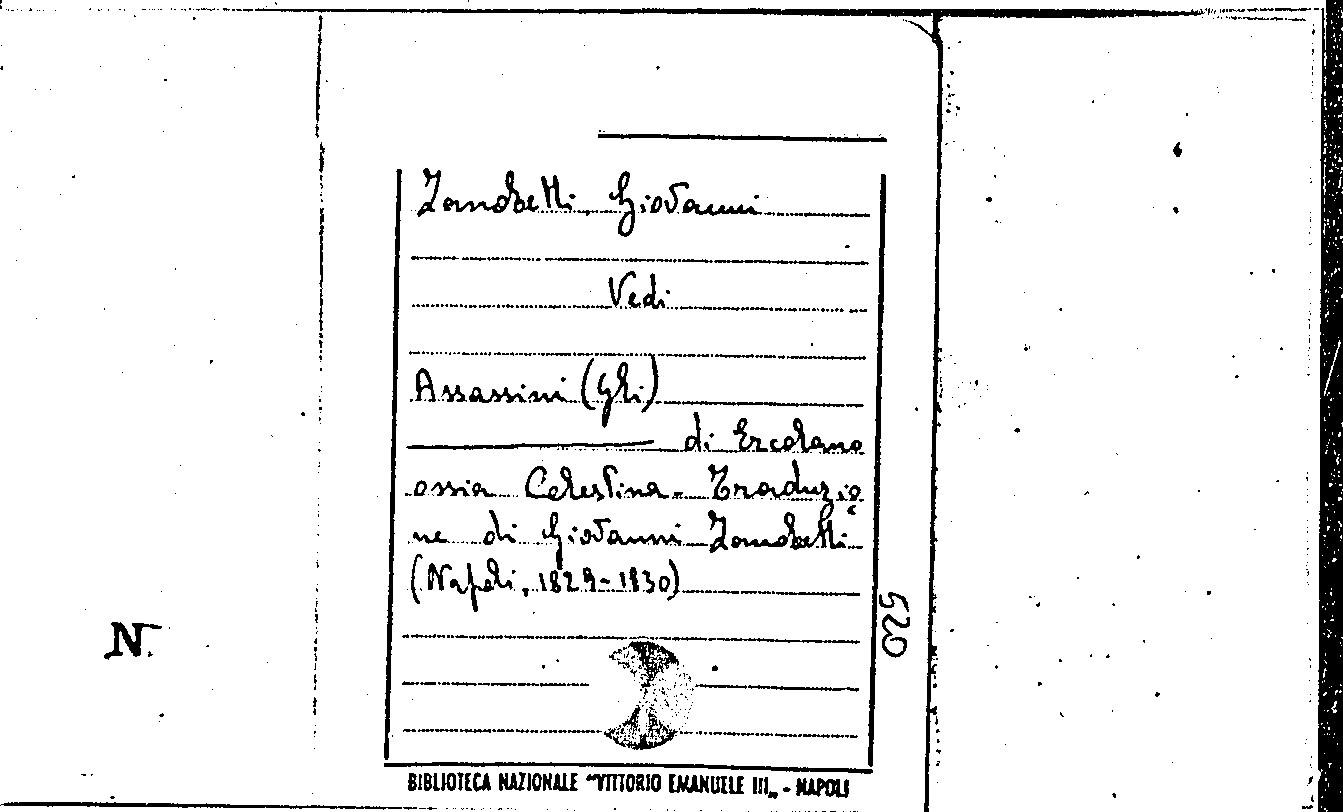 Zanobetti, Giovanni
Vedi
Assassini (Gli)
di Ercolano
ossia Celestina - Traduzio
ne di Giovanni Zanobetti
(Napoli, 1829-1830)
520
N.
BIBLIOTECA NAZIONALE "VITTORIO EMANUELE III„ - NAPOLI